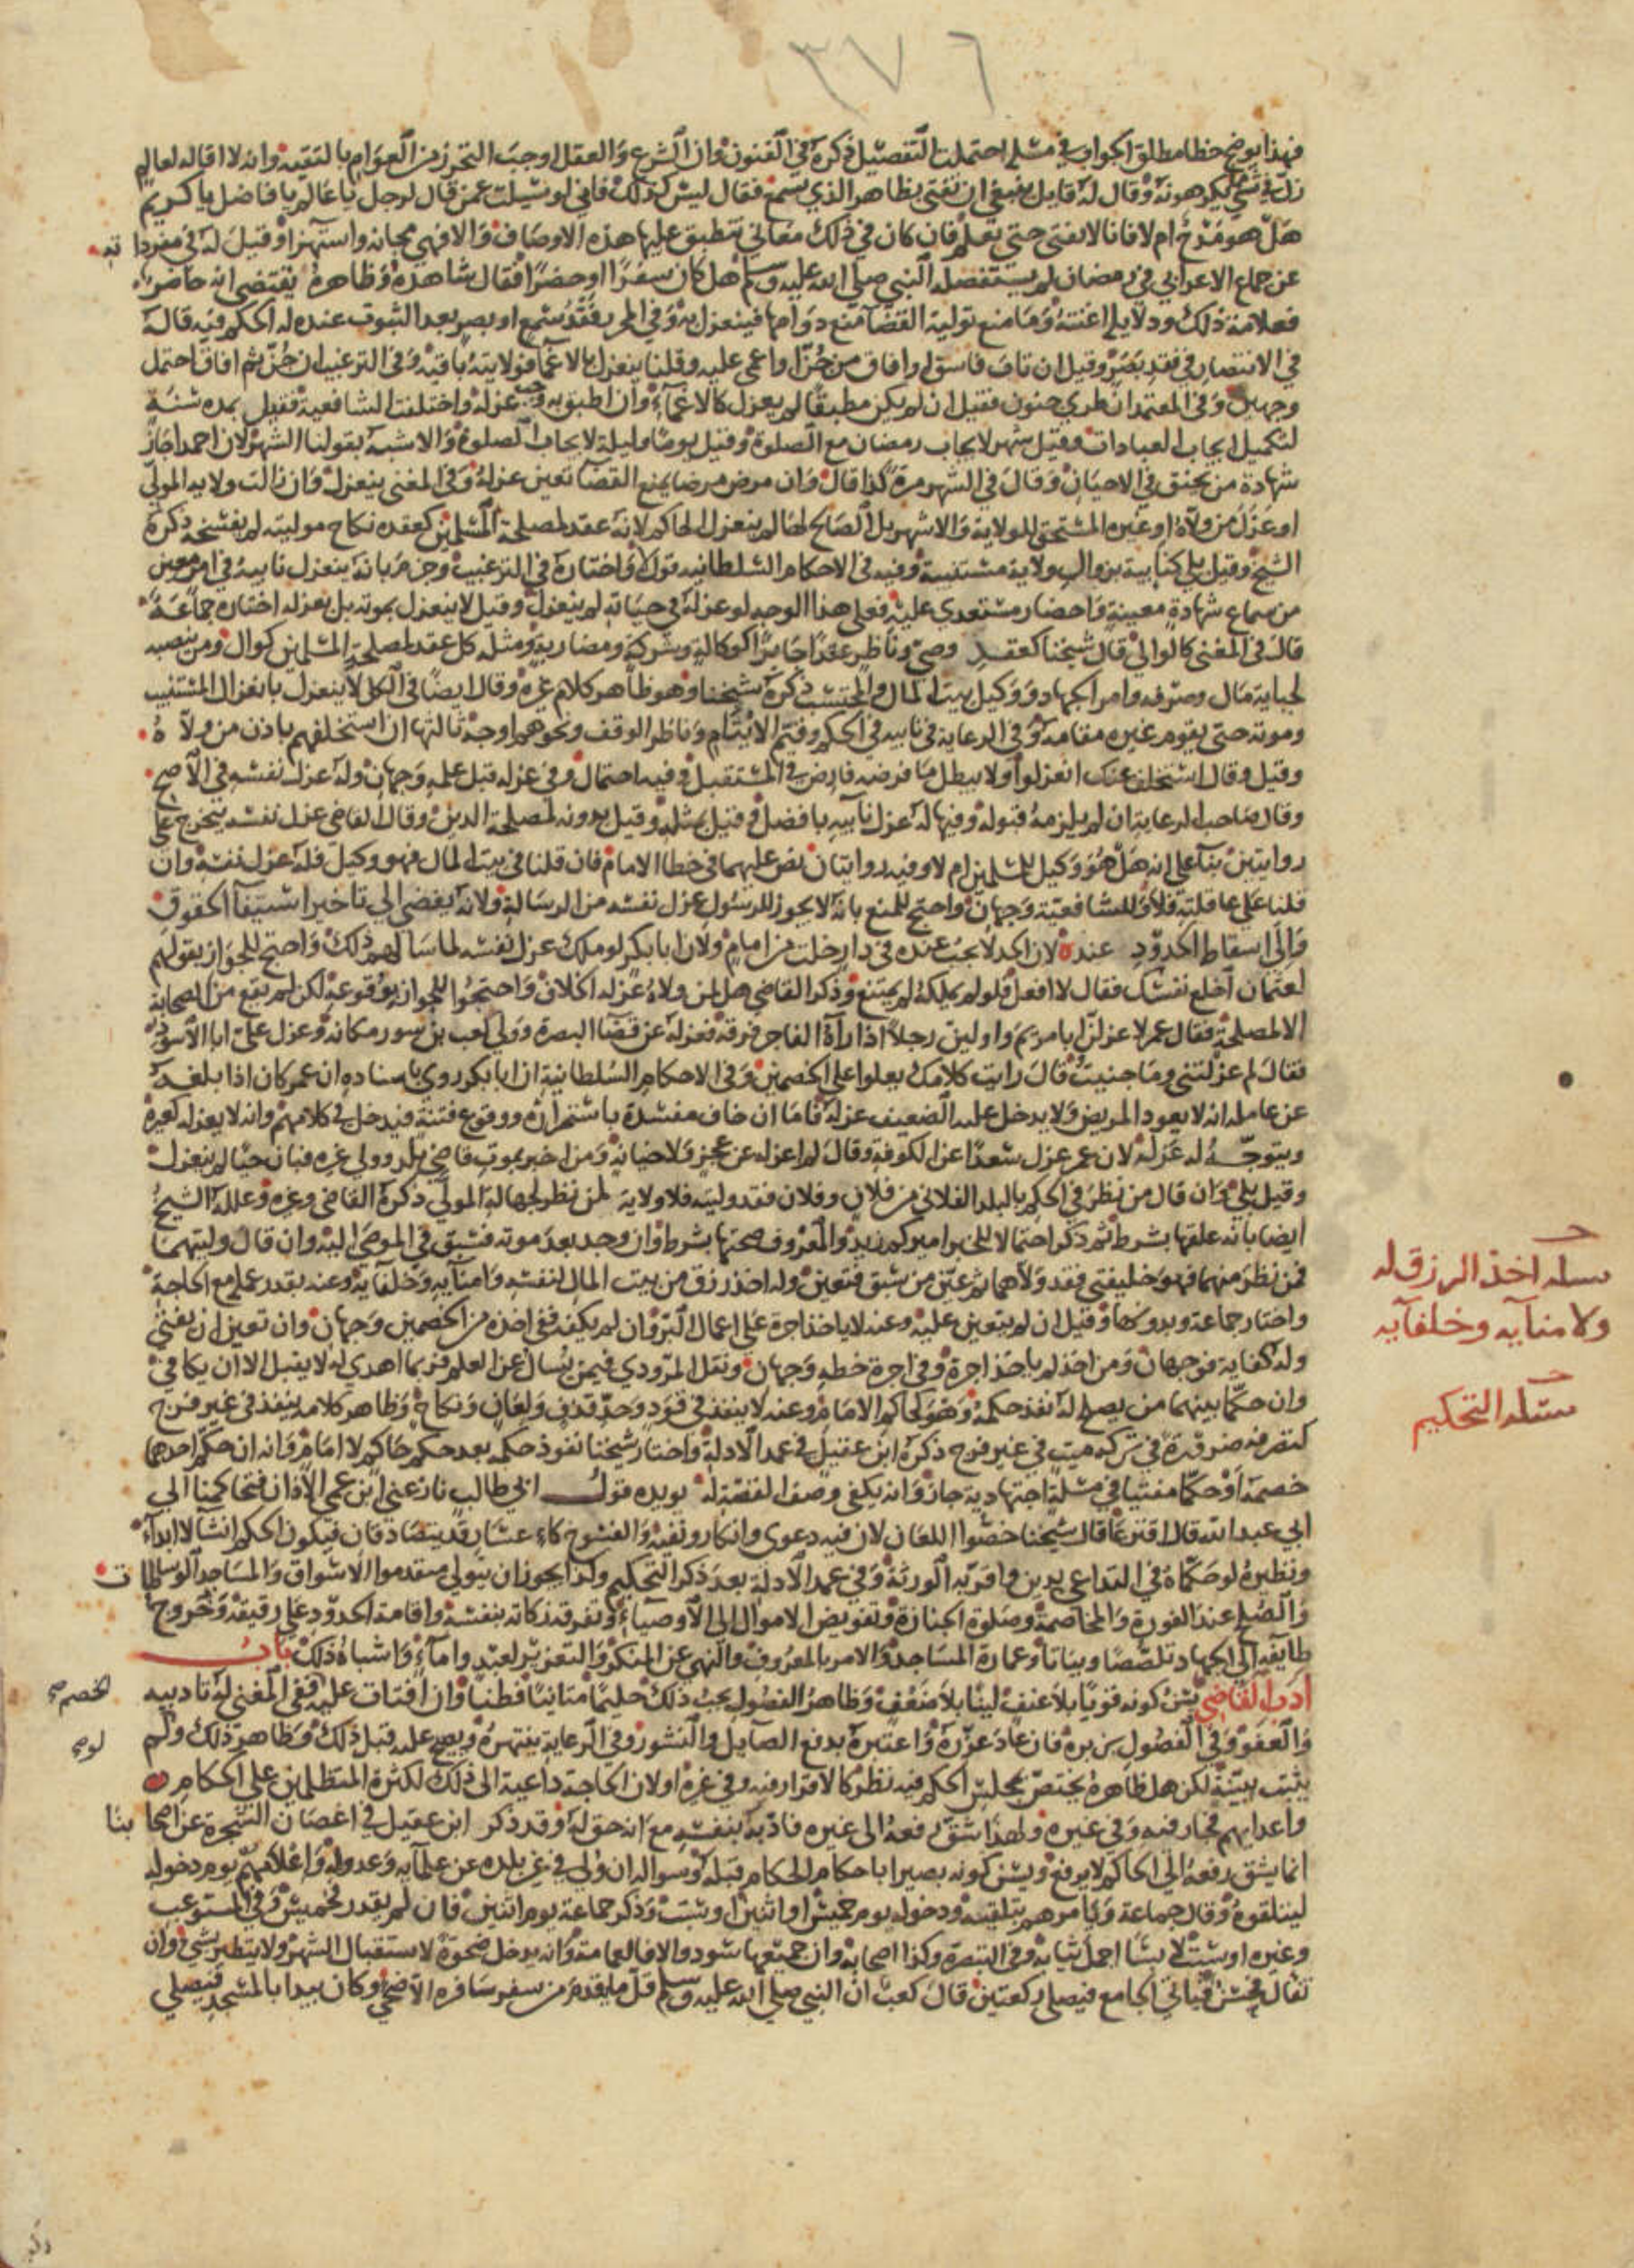 ٣٧٦
فهذا يوضح خطا مطلق الجواب في مسلة احتملت التفصيل ذكره في الفنون وان الشرع والعقل اوجب التحرز من العوام بالتقية وانه لا اقالة لعالم
زل في شي يكرهونه وقال له قايل ينبغي ان تفتي بظاهر الذي يسمع فقال ليس كذلك فاني لو سيلت عمن قال لرجل يا عالم يا فاضل يا كريم
هل هو مدح ام لا فانا لا نفتي حتى نعلم فان كان في ذلك معاني تنطبق عليها هذه الاوصاف والا فهي مجانة واستهزا وقيل له في مفرداته
عن جماع الاعرابي في رمضان لم يستفصله النبي صلى الله عليه وسلم هل كان سفرا او حضرا فقال شاهده وظاهره يقتضي انه حاضر
فعلامة ذلك ودلايله اغنته وما منع تولية القضا منع دوامها فينعزل به وفي المحرر بفقد سمع او بصر بعد الثبوت عنده له الحكم فيه قاله
في الانتصار في فقد بصر وقيل ان تاب فاسق او افاق من جن او اغمي عليه وقلنا ينعزل بالاغما فولايته باقية وفي الترغيب ان جن ثم افاق احتمل
وجهين وفي المعتمد ان طري جنون فقيل ان لم يكن مطبقا لم يعزل كالاغماء وان اطبق به وجب عزله واختلفت الشافعية فقيل بمدة سنة
لتكميل ايجاب العبادات وقيل شهر لايجاب رمضان مع الصلوة وقيل يوما وليلة لايجاب الصلوة والاشبه بقولنا الشهر لان احمد اجاز
شهادة من يخنق في الاحيان وقال في الشهر مرة كذا قال وان مرض مرضا يمنع القضا تعين عزله وفي المغني ينعزل وان زالت ولاية المولي
او عزل من ولاه او غيره المستحق للولاية والاشهر بل الصالح لها لم ينعزل الحاكم لانه عقد لمصلحة المسلمين كعقده نكاح موليته لم يفسخه ذكره
الشيخ وقيل بلى كنايبه بزوال ولاية مستنيبه وفيه في الاحكام السلطانية قولا واختاره في الترغيب وجزم بانه ينعزل نايبه في امر معين
من سماع شهادة معينة واحضار مستعدي عليه فعلى هذا الوجه لو عزله في حياته لم ينعزل وقيل لا ينعزل بموته بل بعزله اختاره جماعة
قال في المغني كالوالي قال شيخنا كعقد وصي وناظر عقدا جايزا كوكالة وشركة ومضاربة ومثله كل عقد لمصلحة المسلمين كوال ومن ينصبه
لجباية مال وصرفه وامر الجهاد ووكيل بيت المال والمحتسب ذكره شيخنا وهو ظاهر كلام غيره وقال ايضا في الكل لا ينعزل بانعزال المستنيب
وموته حتى يقوم غيره مقامه وفي الرعاية في نايبه في الحكم وقيم الايتام وناظر الوقف ونحوهم اوجه ثالثها ان استخلفهم باذن من ولاه
وقيل وقال استخلف عنك انعزلوا ولا يبطل ما فرضه فارض في المستقبل وفيه احتمال وفي عزله قبل علمه وجهان وله عزل نفسه في الاصح
وقال صاحب الرعاية ان لم يلزمه قبوله وفيها له عزل نايبه بافضل وقيل بمثله وقيل بدونه لمصلحة الدين وقال القاضي عزل نفسه يتخرج على
روايتين بنا على انه هل هو وكيل للمسلمين ام لا وفيه روايتان نص عليهما في خطا الامام فان قلنا في بيت المال فهو وكيل فله عزل نفسه وان
قلنا على عاقلته فلا وللشافعية وجهان واحتج للمنع بانه لا يجوز للرسول عزل نفسه من الرسالة ولانه يفضي الى تاخير استيفا الحقوق
والى اسقاط الحدود عنده لان الحد لا يجب عنده في دار خلت من امام ولان ابا بكر لو ملك عزل نفسه لما سالهم ذلك واحتج للجواز بقولهم
لعثمان اخلع نفسك فقال لا افعل فلو لم يملكه لم يمتنع وذكر القاضي هل لمن ولاه عزله الخلاف واحتجوا للجواز بوقوعه لكن لم يقع من الصحابة
الا لمصلحة فقال عمر لاعزلن ابا مريم واولين رجلا اذا رآه الفاجر فرقه فعزله عن قضا البصرة وولى كعب بن سور مكانه وعزل علي ابا الاسود
فقال لم عزلتني وما جنيت قال رايت كلامك يعلوا على الخصمين وفي الاحكام السلطانية ان ابا بكر روى باسناده ان عمر كان اذا بلغه
عن عامله انه لا يعود المريض ولا يدخل عليه الضعيف عزله فاما ان خاف مفسدة باستمراره ووقوع فتنة فيدخل في كلامهم وانه لا يعزله كغيره
ويتوجه له عزله لان عمر عزل سعدا عن الكوفة وقال لم اعزله عن عجز ولا خيانة ومن اخبر بموت قاضي بلد وولي غيره فبان حيا لم ينعزل
وقيل بلى وان قال من نظر في الحكم بالبلد الفلاني من فلان وفلان فقد وليته فلا ولاية لمن نظر لجهالة المولى ذكره القاضي وغيره وعلله الشيخ
ايضا بانه علقها بشرط ثم ذكر احتمالا للخبر اميركم زيد والمعروف صحتها بشرط وان وجد بعد موته فسبق في الموصى اليه وان قال وليتهما
فمن نظر منهما فهو خليفتي فقد ولاهما ثم عين من سبق فتعين وله اخذ رزق من بيت المال لنفسه وامنايه وخلفايه وعنه بقدر عمله مع الحاجة
واختار جماعة وبدونها وقيل ان لم يتعين عليه وعنه لا ياخذ اجرة على اعمال البر وان لم يكفه ففي اخذه من الخصمين وجهان وان تعين ان يفتي
وله كفاية فوجهان ومن اخذ لم ياخذ اجرة وفي اجرة خطه وجهان ونقل المروذي فيمن يسال عن العلم فربما اهدي له لا يقبل الا ان يكافي
وان حكما بينهما من يصلح له نفذ حكمه وهو كحاكم الامام وعنه لا ينفذ في قود وحد قذف ولعان ونكاح وظاهر كلامه ينفذ في غير فرج
كتصرفه ضرورة في تركة ميت في غير فرج ذكره ابن عقيل في عمد الادلة واختار شيخنا نفوذ حكمه بعد حكم حاكم لا امام وانه ان حكم احدهما
خصمه او حكما مفتيا في مسلة اجتهادية جاز وانه يكفي وصف القصة له يويده قول ابي طالب نازعني ابن عمي الاذان فتحاكمنا الى
ابي عبد الله قال اقترعا قال شيخنا خصوا اللعان لان فيه دعوى وانكار وبقية الفسوخ كاعسار قد يتصادقان فيكون الحكم انشا لا ابدآء
ونظيره لو حكماه في التداعي بدين واقر به الورثة وفي عمد الادلة بعد ذكر التحكيم وكذا يجوز ان يتولى متقدموا الاسواق والمساجد الوساطات
والصلح عند الفورة والمخاصمة وصلوة الجنازة وتفويض الاموال الى الاوصياء وتفرقة زكاته بنفسه واقامة الحدود على رقيقه وخروج
طايفة الى الجهاد تلصصا وبياتا وعمارة المساجد والامر بالمعروف والنهي عن المنكر والتعزير لعبيد وامآء واشباه ذلك باب
ادب القاضي يسن كونه قويا بلا عنف لينا بلا ضعف وظاهر الفصول يجب ذلك حليما متانيا فطنا وان افتات عليه ففي المغني له تاديبه
والعفو وفي الفصول يزبره فان عاد عزره واعتبره بدفع الصايل والنشوز وفي الرعاية ينتهره ويصيح عليه قبل ذلك وظاهر ذلك ولم
يثبت ببينة لكن هل ظاهره يختص بمجلس الحكم فيه نظر كالاقرار فيه وفي غيره او لان الحاجة داعية الى ذلك لكثرة المتظلمين على الحكام
واعدايهم فجاز فيه وفي غيره ولهذا شق رفعه الى غيره فادبه بنفسه مع انه حق له وقد ذكر ابن عقيل في اغصان الشجرة عن اصحابنا
انما يشق رفعه الى الحاكم لا يرفع ويسن كونه بصيرا باحكام الحكام قبله وسواله ان ولي في غير بلده عن علمايه وعدوله واعلامهم يوم دخوله
ليتلقوه وقال جماعة ويامرهم بتلقيه ودخوله يوم خميس او اثنين او سبت وذكر جماعة يوم اثنين فان لم يقدر فخميس وفي المستوعب
وغيره او سبت لابسا اجمل ثيابه وفي التبصرة وكذا اصحابه وان جميعها سود والا فالعمامة وانه يدخل ضحوة لاستقبال الشهر ولا يتطير بشي وان
تفال فحسن فياتي الجامع فيصلي ركعتين قال كعب ان النبي صلى الله عليه وسلم قل ما يقدم من سفر سافره الا ضحى وكان يبدا بالمسجد فيصلي
مسلة اخذ الرزق له
ولامنآيه وخلفآيه
مسلة التحكيم
الخصم صح